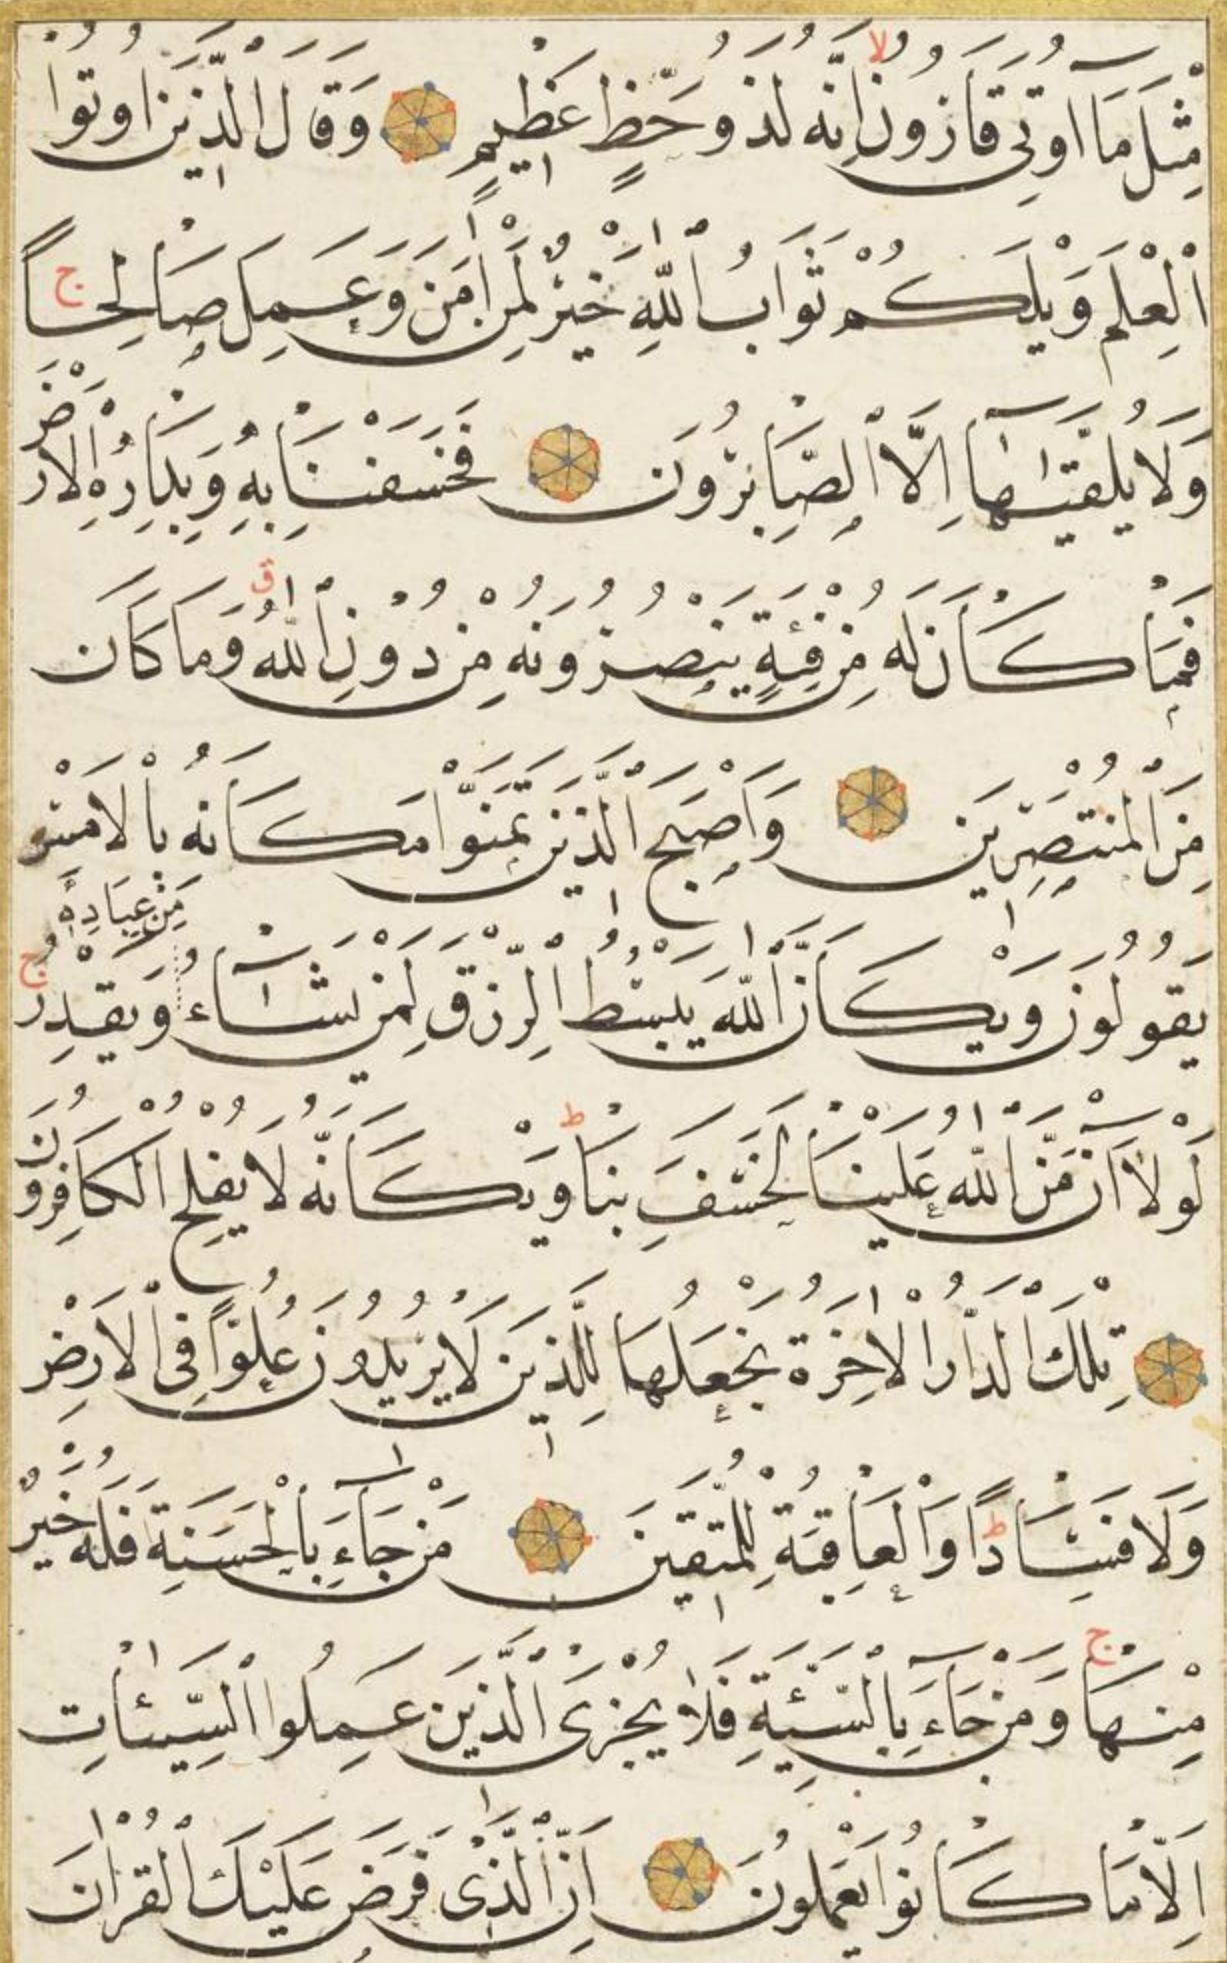 مِثْلَ مَا اُوتِيَ قَارُونُ اِنَّهُ لَذُو حَظٍّ عَظِيمٍ وَقَالَ الَّذِينَ اُوتُوا
الْعِلْمَ وَيْلَكُمْ ثَوَابُ اللّٰهِ خَيْرٌ لِمَنْ اٰمَنَ وَعَمِلَ صَالِحًا
وَلَا يُلَقّٰيهَا اِلَّا الصَّابِرُونَ فَخَسَفْنَا بِهِ وَبِدَارِهِ الْاَرْضَ
فَمَا كَانَ لَهُ مِنْ فِئَةٍ يَنْصُرُونَهُ مِنْ دُونِ اللّٰهِ وَمَا كَانَ
مِنَ الْمُنْتَصِرِينَ وَاَصْبَحَ الَّذِينَ تَمَنَّوْا مَكَانَهُ بِالْاَمْسِ
يَقُولُونَ وَيْكَاَنَّ اللّٰهَ يَبْسُطُ الرِّزْقَ لِمَنْ يَشَاءُ مِنْ عِبَادِهِ وَيَقْدِرُ
لَوْلَا اَنْ مَنَّ اللّٰهُ عَلَيْنَا لَخَسَفَ بِنَا وَيْكَاَنَّهُ لَا يُفْلِحُ الْكَافِرُونَ
تِلْكَ الدَّارُ الْاٰخِرَةُ نَجْعَلُهَا لِلَّذِينَ لَا يُرِيدُونَ عُلُوًّا فِي الْاَرْضِ
وَلَا فَسَادًا وَالْعَاقِبَةُ لِلْمُتَّقِينَ مَنْ جَاءَ بِالْحَسَنَةِ فَلَهُ خَيْرٌ
مِنْهَا وَمَنْ جَاءَ بِالسَّيِّئَةِ فَلَا يُجْزَى الَّذِينَ عَمِلُوا السَّيِّئَاتِ
اِلَّا مَا كَانُوا يَعْمَلُونَ اِنَّ الَّذِي فَرَضَ عَلَيْكَ الْقُرْاٰنَ